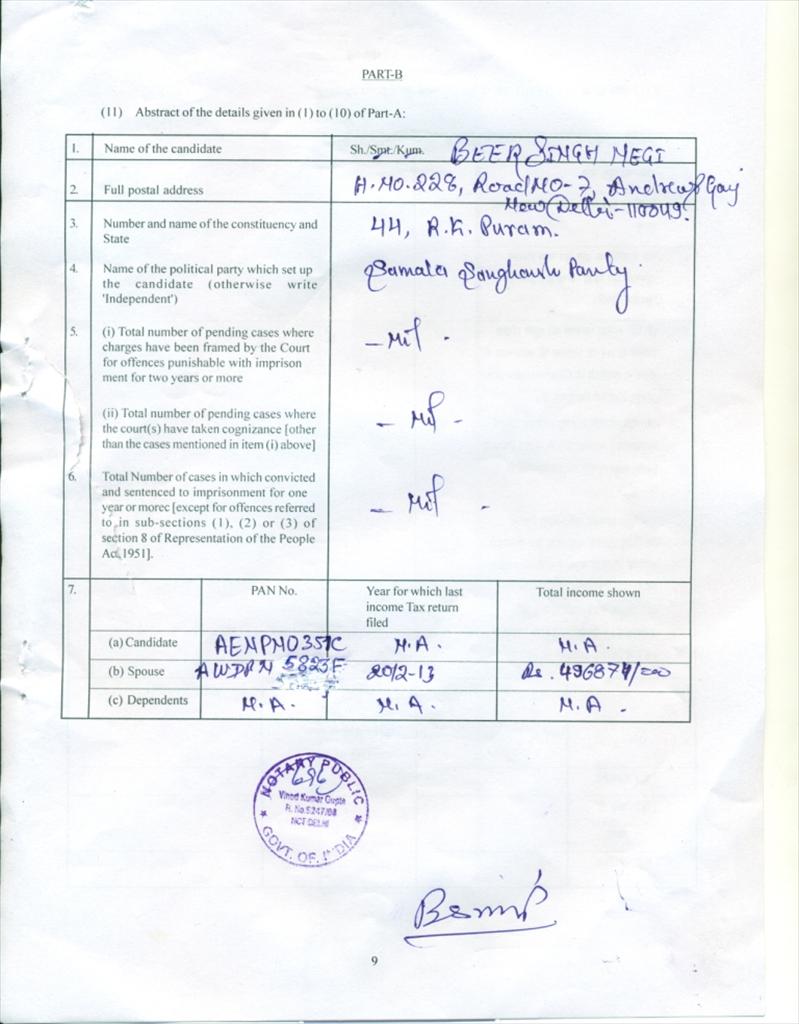 PART-B
(11) Abstract of the details given in (1) to (10) of Part-A:
1. Name of the candidate Sh./Smt./Kum. BEER SINGH NEGI
2. Full postal address H.NO.228, Road NO-7, Andrews Ganj
New Delhi-110049.
3. Number and name of the constituency and
State 44, R.K. Puram.
4. Name of the political party which set up
the candidate (otherwise write
'Independent') Samata Sangharsh Party.
5. (i) Total number of pending cases where
charges have been framed by the Court
for offences punishable with imprison
ment for two years or more - Nil -
(ii) Total number of pending cases where
the court(s) have taken cognizance [other
than the cases mentioned in item (i) above] - Nil -
6. Total Number of cases in which convicted
and sentenced to imprisonment for one
year or morec [except for offences referred
to in sub-sections (1), (2) or (3) of
section 8 of Representation of the People
Act, 1951]. - Nil -
7. PAN No. Year for which last
income Tax return
filed Total income shown
(a) Candidate N.A. N.A.
(b) Spouse 2012-13 Rs. 496874/=00
(c) Dependents N.A. N.A. N.A.
NOTARY PUBLIC
Vinod Kumar Gupta
R. No.5247/08
NCT DELHI
GOVT. OF INDIA
9